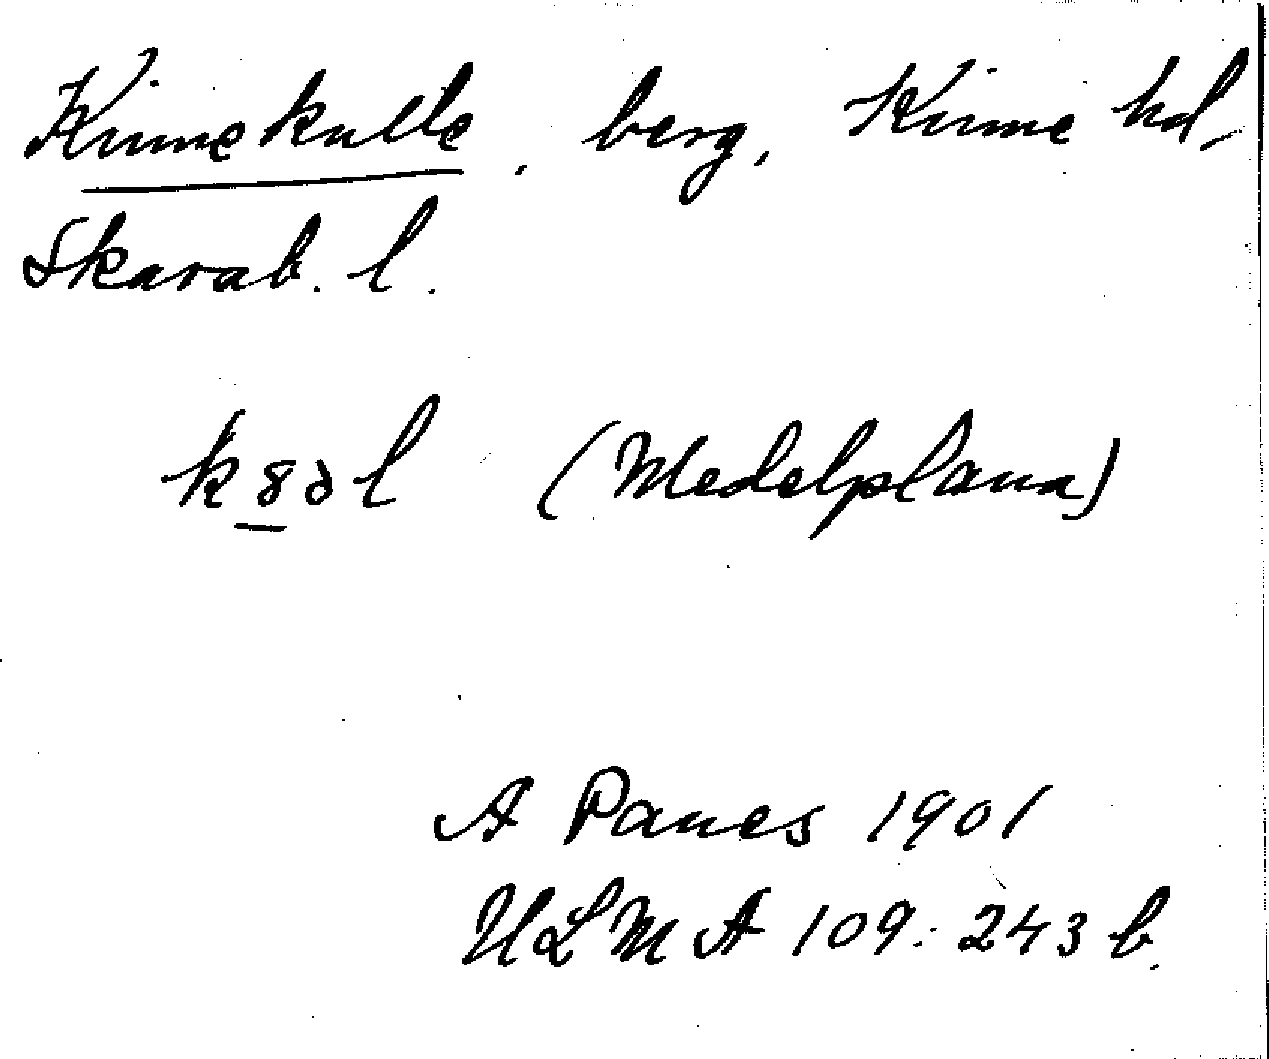 Kinnekulle, berg, Kinne hd,
Skarab. l.
k8al (Medelplana)
A Panes 1901
ULMA 109:243 b.